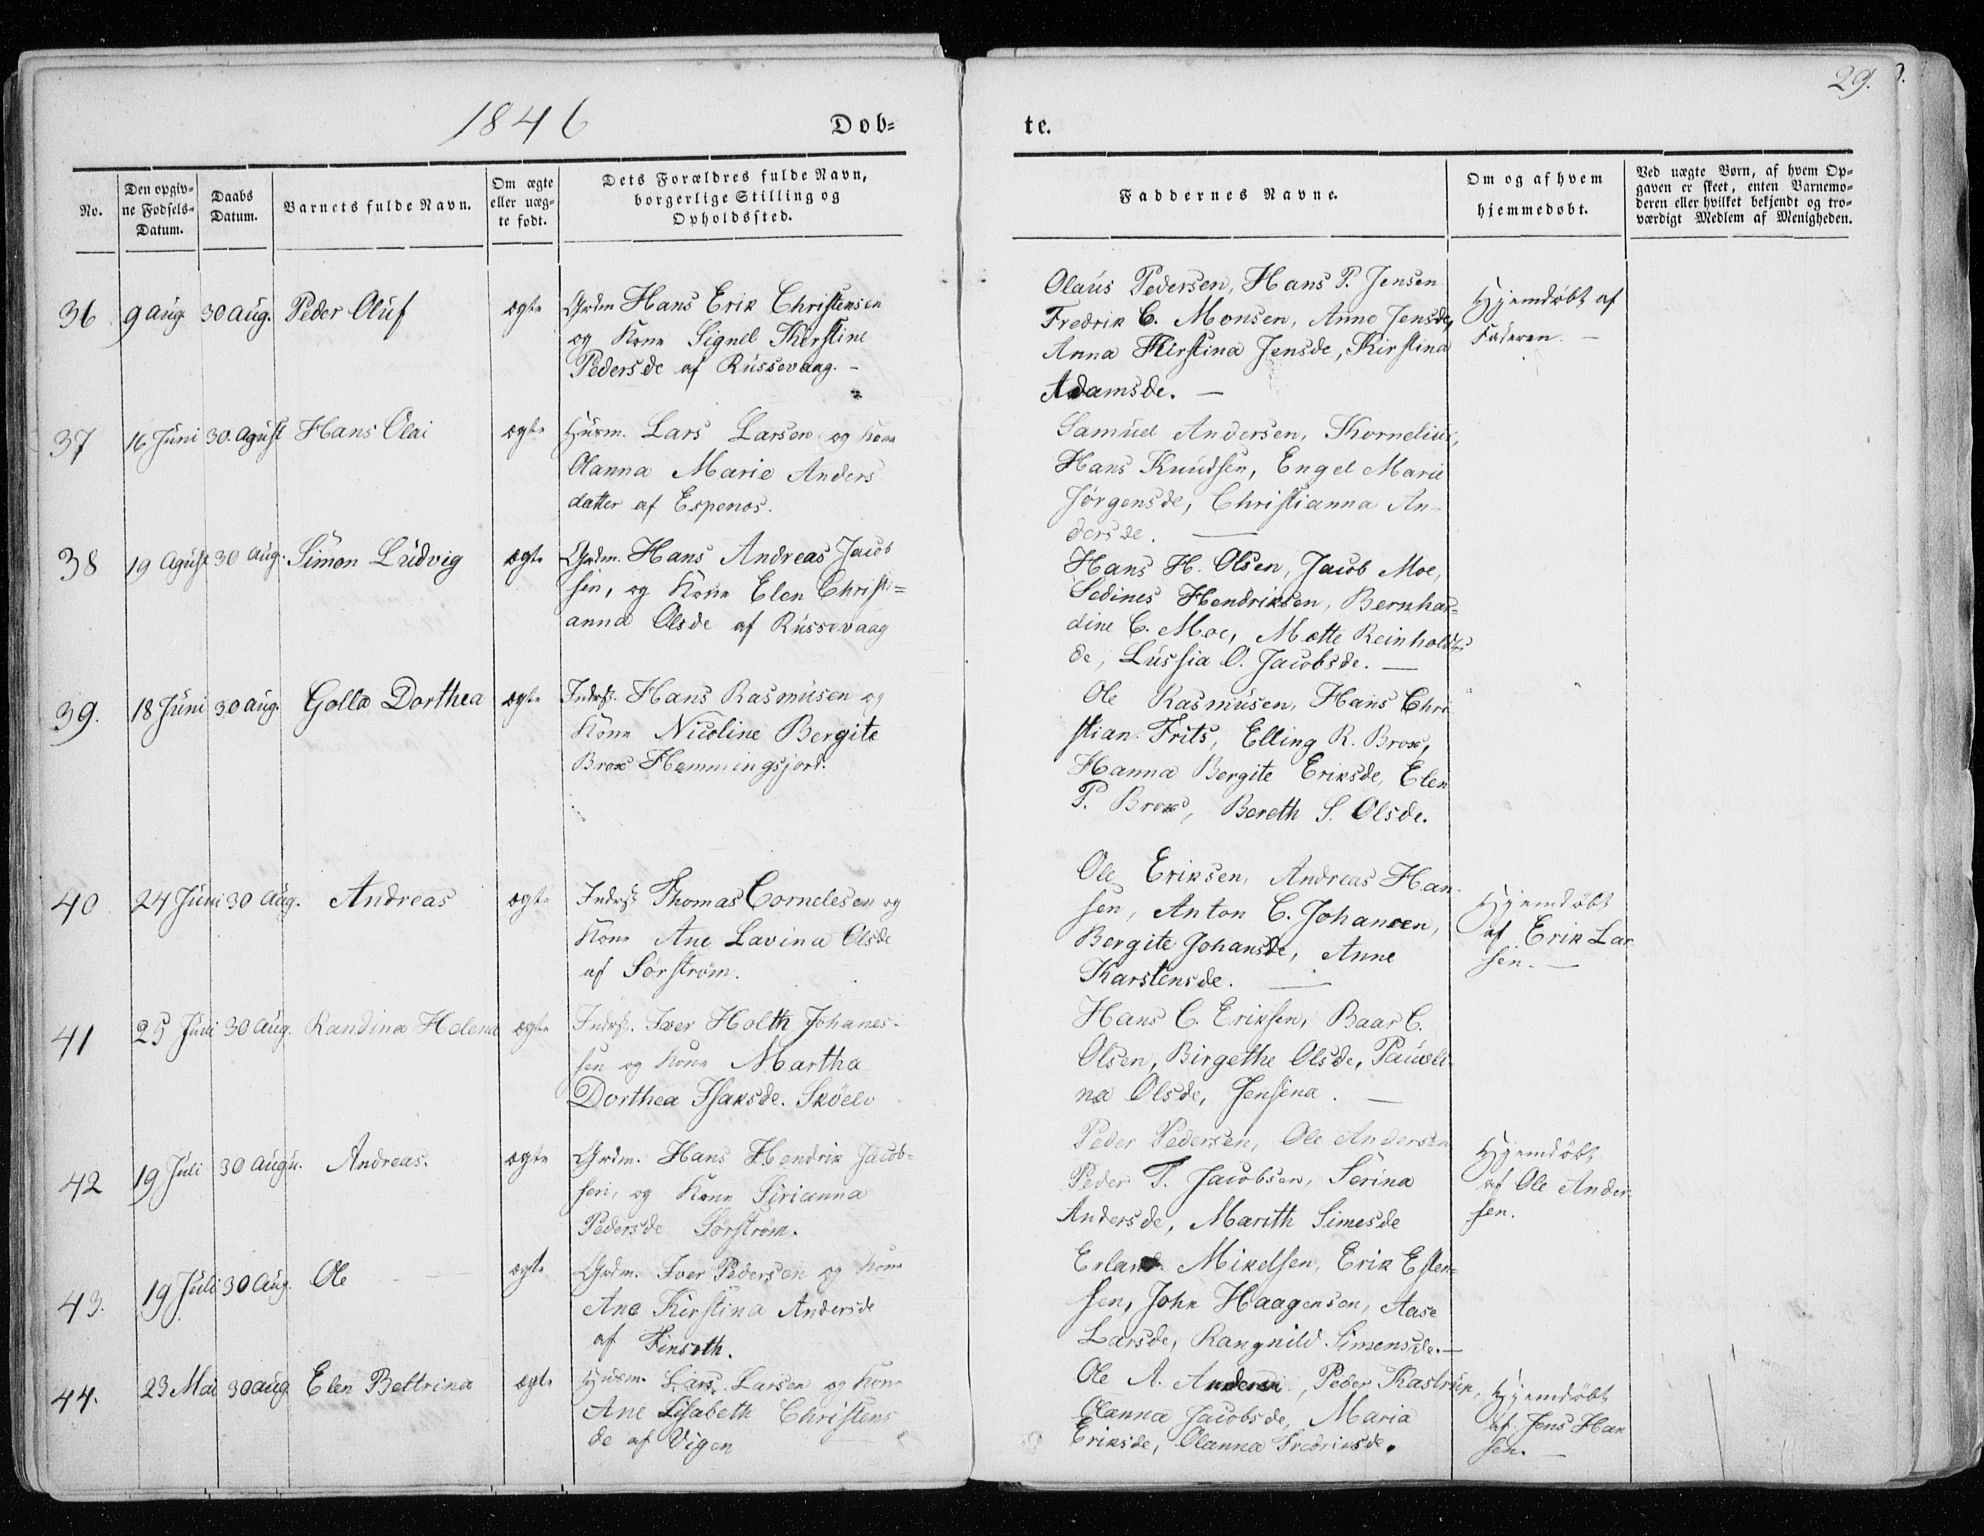 29.
1846
Dob=
te.
No.
Den opgiv=
ne Fodsels=
Datum.
Daabs
Datum.
Barnets fulde Navn.
Om ægte
eller uæg=
te født.
Dets Forældres fulde Navn,
borgerlige Stilling og
Opholdssted.
Faddernes Navne.
Om og af hvem
hjemmedobt.
Ved uægte Born, af hvem Op=
gaven er skeet, enten Barnemo=
deren eller hvilket bekjendt og tro=
værdigt Medlem af Menigheden.
36 9 aug. 30 aug. Peder Oluf ægte
Grdm Hans Erik Christensen
og Kone Signel Kirstine
Pedersde af Russevaag. –
Olaus Pedersen, Hans P. Jensen
Fredrik C. Monsen, Anne Jensde,
Anna Kirstina Jensde, Kirstina
Adamsde. —
Hjemdøbt af
Faderen. —
37 16 Juni 30. Agust Hans Olai ægte
Husm. Lars Larsen og Kone
Olanna Marie Anders
datter af Espenes.
Samuel Andersen, Kornelius,
Hans Knudsen, Engel Marie
Jørgensde, Christianna An-
dersde. —
38 19 Agust 30 aug. Simon Ludvig ægte
Grdm. Hans Andreas Jacob
sen, og Kone Elen Christi=
anna Olsde af Russevaag
Hans H. Olsen, Jacob Moe,
Sedines Hendriksen, Bernhar=
dine C. Moe, Mette Reinholds
de, Lussia O. Jacobsde. —
39. 18 Juni 30 aug. Golla Dorthea ægte
Indrst. Hans Rasmusen og
Kone Nicoline Bergite
Brox Hemmingsjord.
Ole Rasmusen, Hans Chri
stian Frits, Elling R. Brox,
Hanna Bergite Eriksde, Elen
P. Brox, Bereth S. Olsde.
40 24 Juni 30 aug. Andreas ægte
Indrst Thomas Cornelesen og
Kone Ane Lavina Olsde
af Sørstrøm.
Ole Eriksen, Andreas Han-
sen, Anton C. Johansen,
Bergite Johansde, Anne
Karstensde. —
Hjemdøbt
af Erik Lar
sen. —
41 25 Juni 30 aug. Randina Helena ægte
Indrst. Iver Holth Johanes-
sen og Kone Martha
Dorthea Isaksde. Skøelv
Hans C. Eriksen, Baar C.
Olsen, Birgethe Olsde, Pauoli-
na Olsde, Jensina. —
42 19 Juli 30 augu. Andreas. ægte
Grdm. Hans Hendrik Jacob=
sen, og Kone Sirianna
Pedersde Sørstrøm.
Peder Pedersen, Ole Andersen
Peder T. Jacobsen, Serina
Andersde, Marith Simesde
Hjemdøbt
af Ole Ander
sen.
43. 19 Juli 30 aug. Ole ægte
Grdm. Iver Pedersen og Kone
Ane Kirstina Andersde
af Finseth.
Erland Mikelsen, Erik Esten=
sen, John Haagensen, Aase
Larsde, Rangnild Simensde. —
44. 23 Mai 30 aug. Elen Beltrina ægte
Husm. Lars Larsen og Kone
Ane Lisabeth Christens
de af Vigen
Ole A. Andersen, Peder Kastrup,
Olanna Jacobsde, Maria
Eriksde, Olanna Fredriksde.
Hjemdøbt
af Jens Han
sen. —